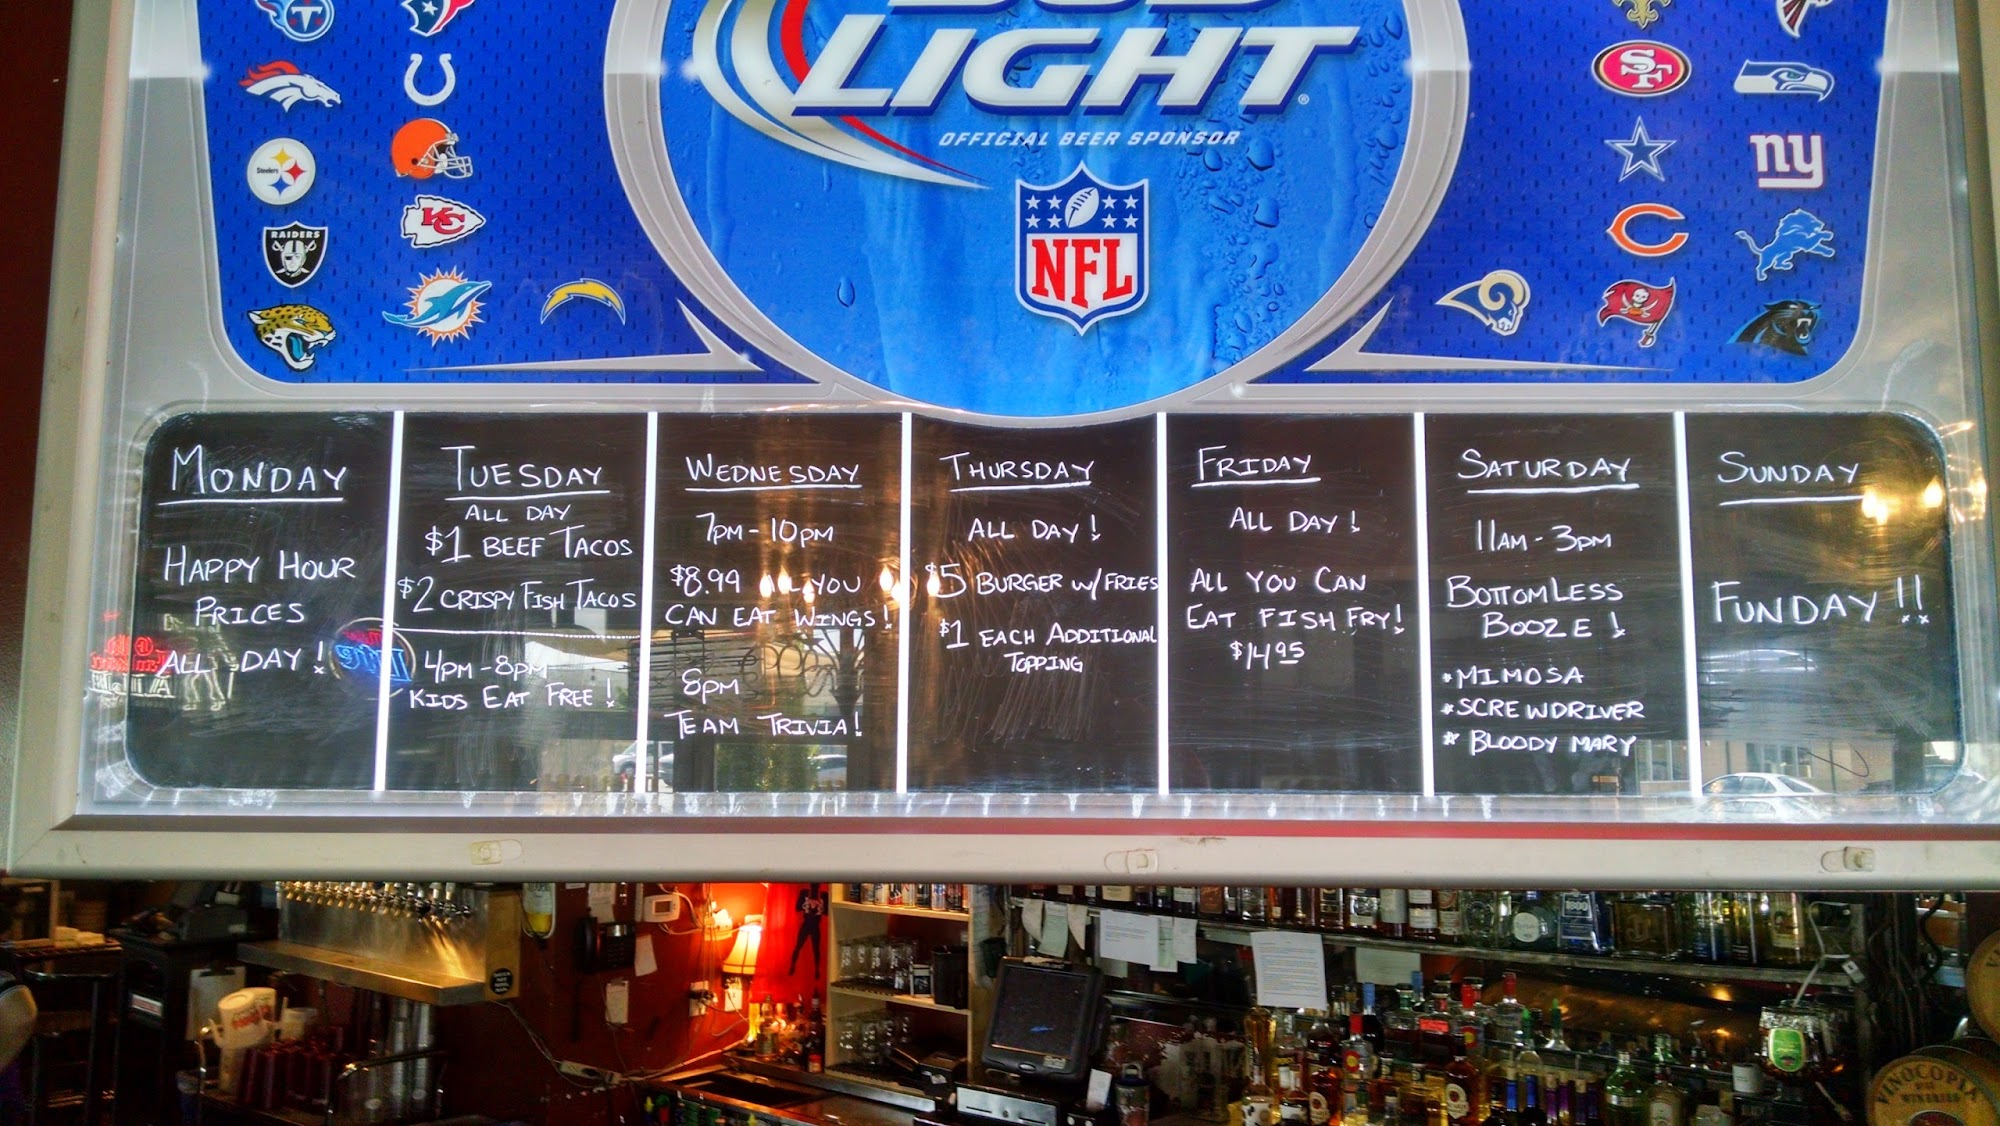 LIGHT
OFFICIAL BEER SPONSOR
NFL
Steelers
RAIDERS
KC
SF
ny
MONDAY
HAPPY HOUR
PRICES
ALL DAY!
TUESDAY
ALL DAY
$1 BEEF TACOS
$2 CRISPY FISH TACOS
4PM-8PM
KIDS EAT FREE!
WEDNESDAY
7PM-10PM
$8.99 ALL YOU
CAN EAT WINGS!
8PM
TEAM TRIVIA!
THURSDAY
ALL DAY!
$5 BURGER W/FRIES
$1 EACH ADDITIONAL
TOPPING
FRIDAY
ALL DAY!
ALL YOU CAN
EAT FISH FRY!
$14.95
SATURDAY
11AM-3PM
BOTTOMLESS
BOOZE!
*MIMOSA
*SCREWDRIVER
* BLOODY MARY
SUNDAY
FUNDAY!!
Lite
1800
VINOCOPIA
WINERIES